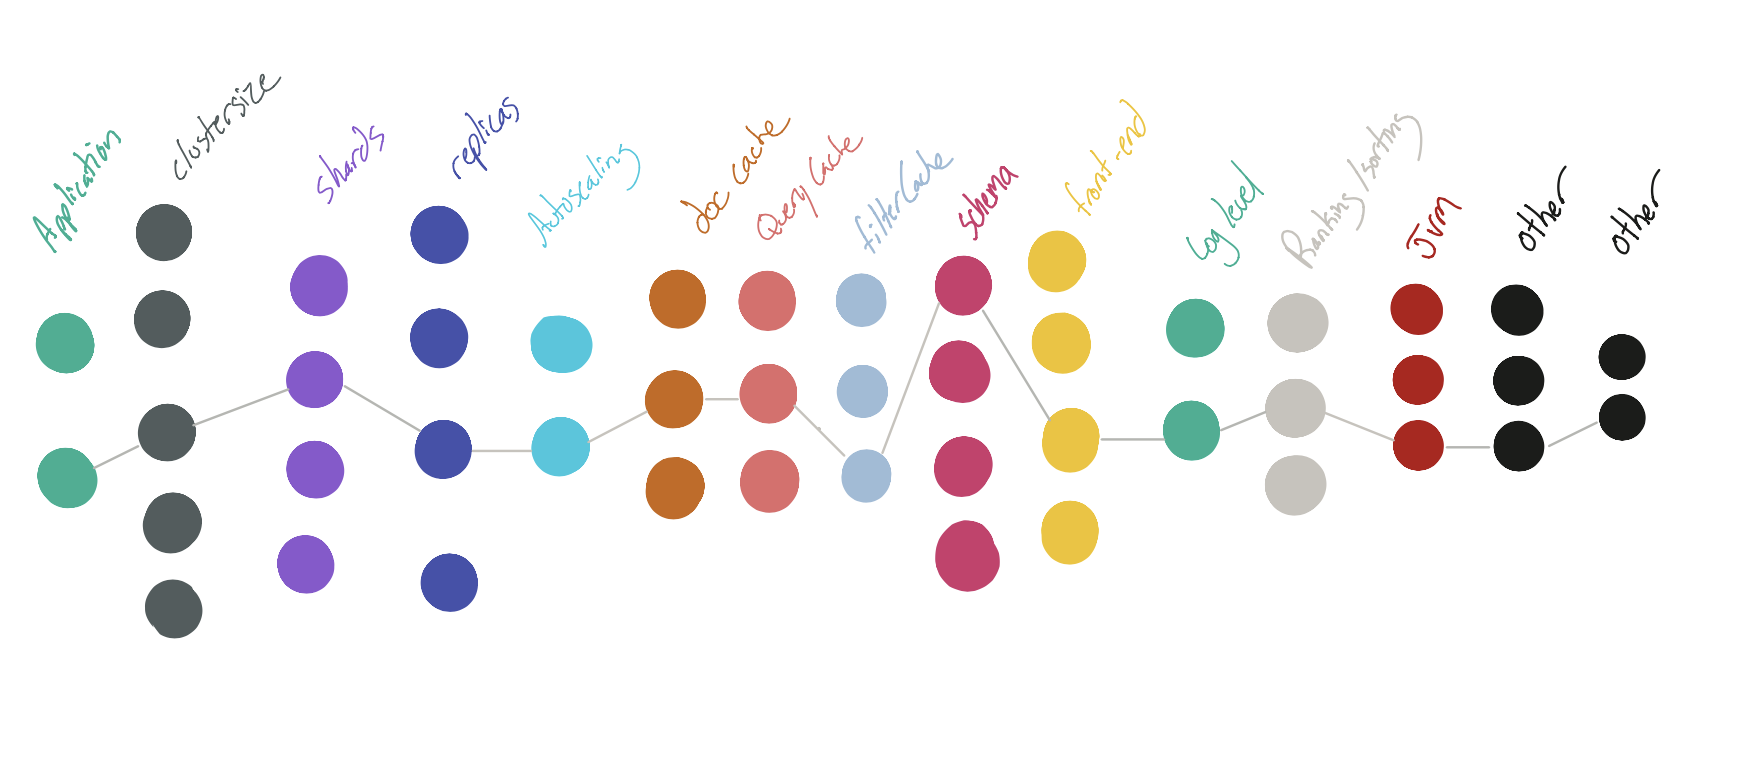 Application
clustersize
shards
replicas
Autoscaling
doc cache
Query Cache
filterCache
schema
front-end
Log level
Ranking/sorting
Jvm
other
other